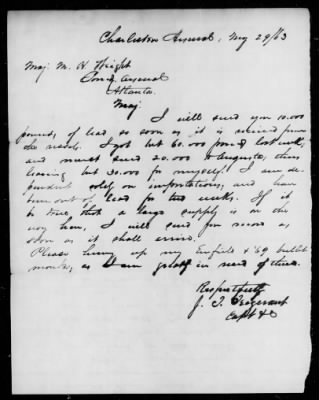 Charleston Arsenal, Aug 29/63
Maj. M. H. Wright
Comg Arsenal
Atlanta.
Maj
I will send you 10.000
pounds, of lead so soon as it is received from
the vessels. I got but 60.000 pounds last week,
and must send 20.000 to Augusta, thus
leaving but 30.000 for myself. I am de-
pendent solely on importations, and have
been out of lead for two weeks. If it
be true, that a large supply is on the
way here, I will send you more as
soon as it shall arrive.
Please hurry up my Enfield & 69 bullet
moulds, as I am greatly in need of them.
Respectfully
J. T.
Capt &c